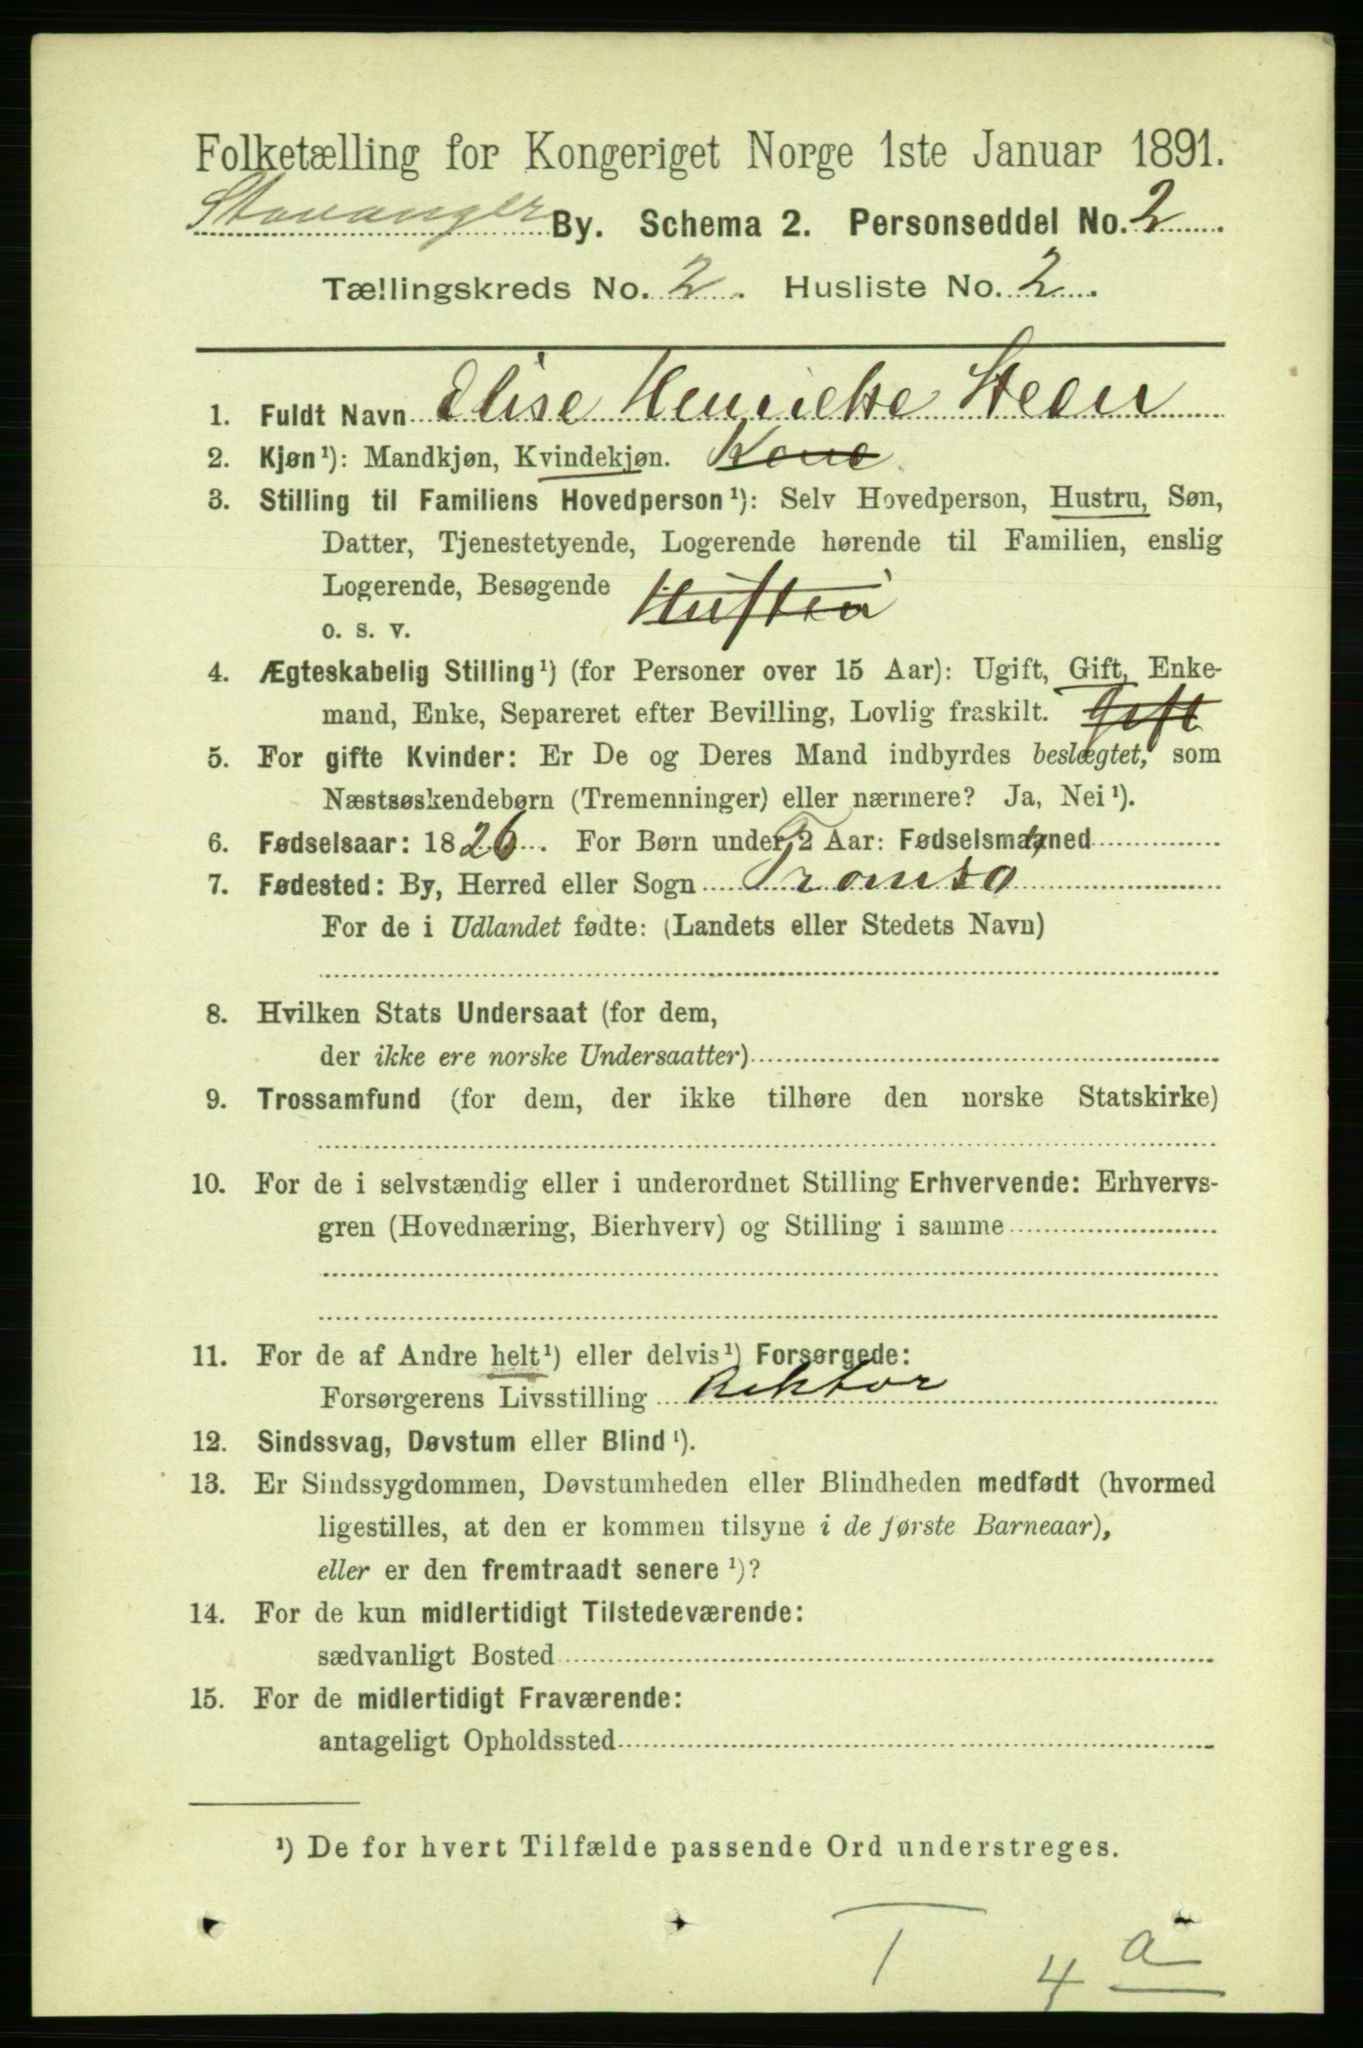 Folketælling for Kongeriget Norge 1ste Januar 1891.
Stavanger By. Schema 2. Personseddel No. 2
Tællingskreds No. 2. Husliste No. 2.
1. Fuldt Navn Elise Henriette Steen
2. Kjøn¹): Mandkjøn, Kvindekjøn. Kone
3. Stilling til Familiens Hovedperson¹): Selv Hovedperson, Hustru, Søn,
Datter, Tjenestetyende, Logerende hørende til Familien, enslig
Logerende, Besøgende
o. s. v.
4. Ægteskabelig Stilling¹) (for Personer over 15 Aar): Ugift, Gift, Enke-
mand, Enke, Separeret efter Bevilling, Lovlig fraskilt. Gift
5. For gifte Kvinder: Er De og Deres Mand indbyrdes beslægtet, som
Næstsøskendebørn (Tremenninger) eller nærmere? Ja, Nei¹).
6. Fødselsaar: 1826. For Børn under 2 Aar: Fødselsmaaned
7. Fødested: By, Herred eller Sogn Tromsø
For de i Udlandet fødte: (Landets eller Stedets Navn)
8. Hvilken Stats Undersaat (for dem,
der ikke ere norske Undersaatter)
9. Trossamfund (for dem, der ikke tilhøre den norske Statskirke)
10. For de i selvstændig eller i underordnet Stilling Erhvervende: Erhvervs-
gren (Hovednæring, Bierhverv) og Stilling i samme
11. For de af Andre helt¹) eller delvis¹) Forsørgede:
Forsørgerens Livsstilling Rektor
12. Sindssvag, Døvstum eller Blind¹).
13. Er Sindssygdommen, Døvstumheden eller Blindheden medfødt (hvormed
ligestilles, at den er kommen tilsyne i de første Barneaar),
eller er den fremtraadt senere¹)?
14. For de kun midlertidigt Tilstedeværende:
sædvanligt Bosted
15. For de midlertidigt Fraværende:
antageligt Opholdssted
¹) De for hvert Tilfælde passende Ord understreges.
T 4 a